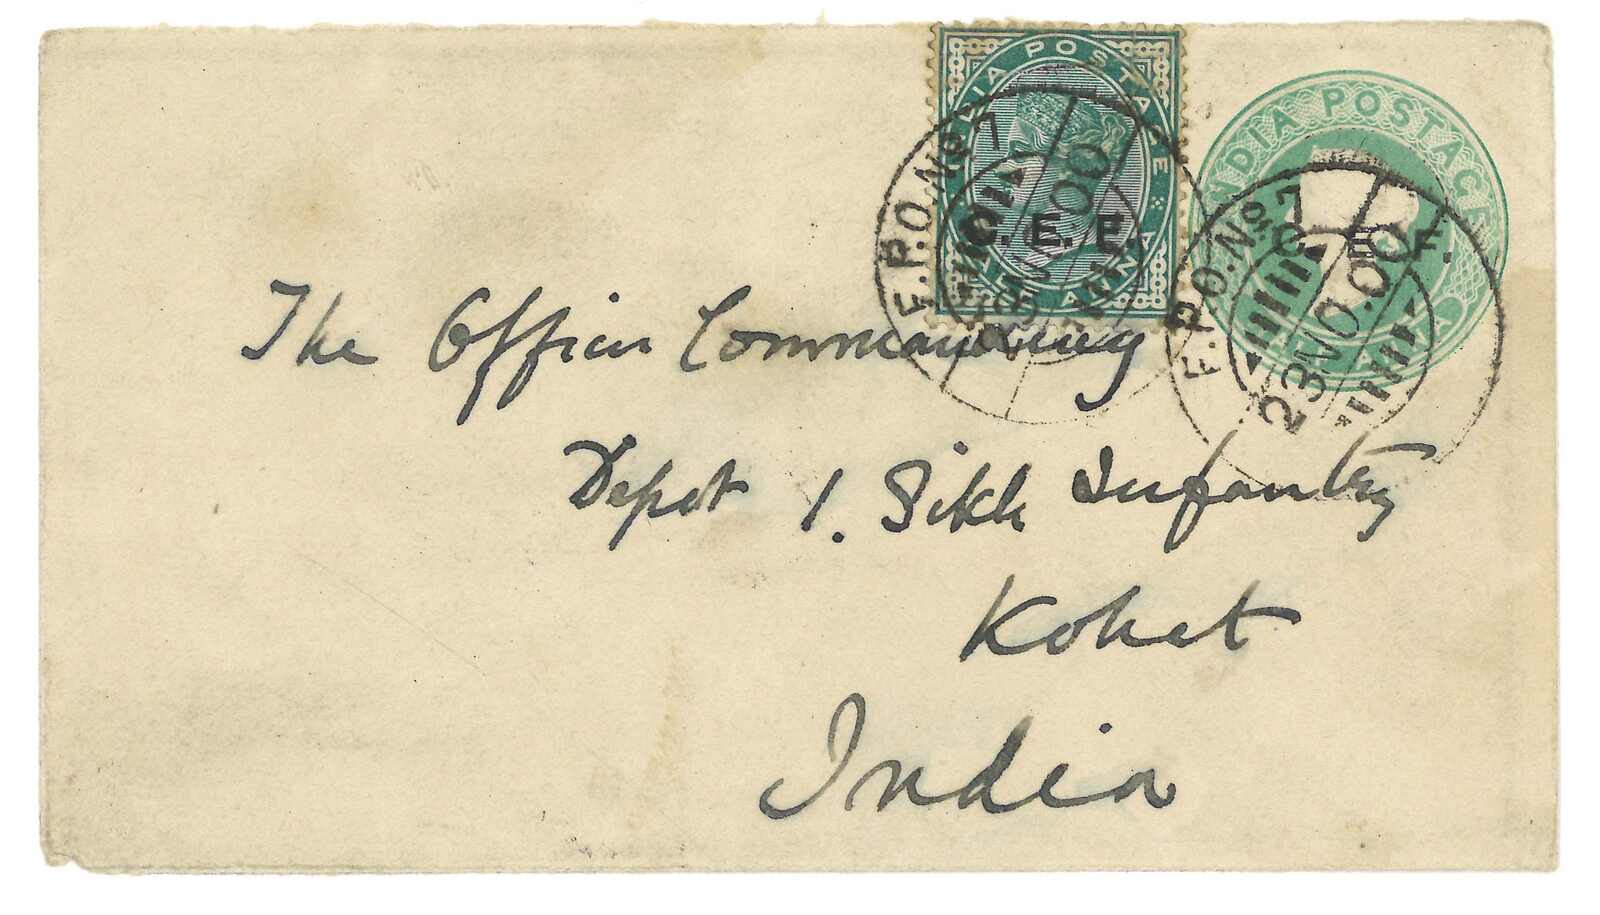 INDIA POSTAGE
C. E. F.
HALF ANNA
F.P.O. No. 7
23 NO. 00
INDIA POSTAGE
C. E. F.
HALF ANNA
F.P.O. No. 7
23 NO. 00
The Officer Commanding
Depot 1. Sikh Infantry
Kohat
India